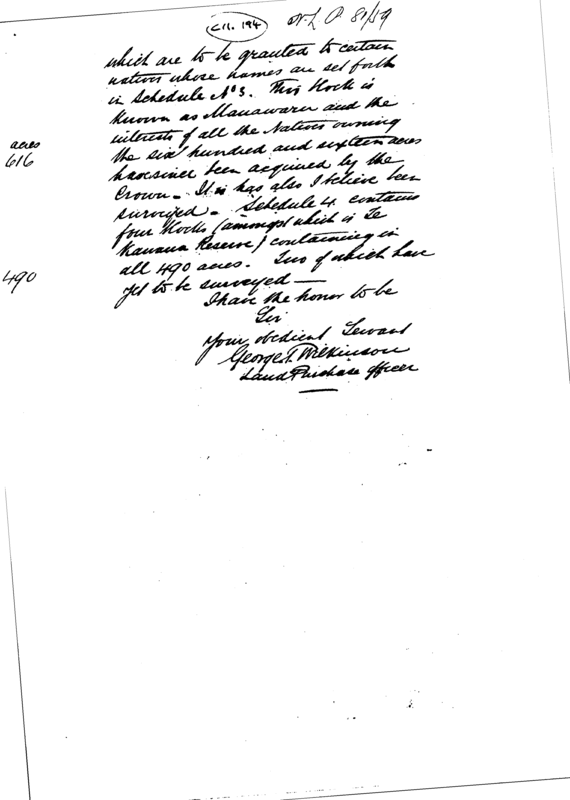 C11. 194
N.L.P. 81/59
which are to be granted to certain
natives whose names are set forth
in Schedule No 3. This block is
known as Manawaru and the
interests of all the Natives owning
acres
616
the six hundred and sixteen acres
have since been acquired by the
Crown. It has also I believe been
surveyed. Schedule 4 contains
four blocks (amongst which is Te
Kawana Reserve) containing in
490
all 490 acres. Two of which have
yet to be surveyed —
I have the honor to be
Sir
Your obedient Servant
George T. Wilkinson
Land Purchase Officer